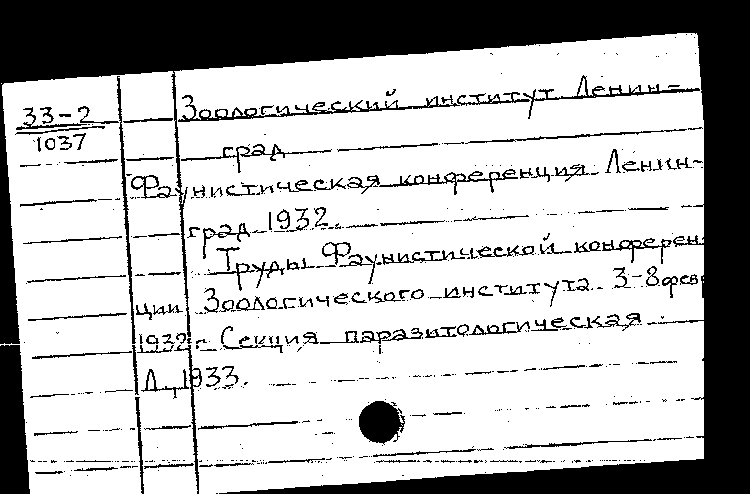 33-2
1037
Зоологический институт Ленин=
град
Фаунистическая конференция Ленин-
град 1932.
Труды Фаунистической конферен
ции Зоологического института 3-8 фев
1932 г Секция паразитологическая.
Л., 1933.